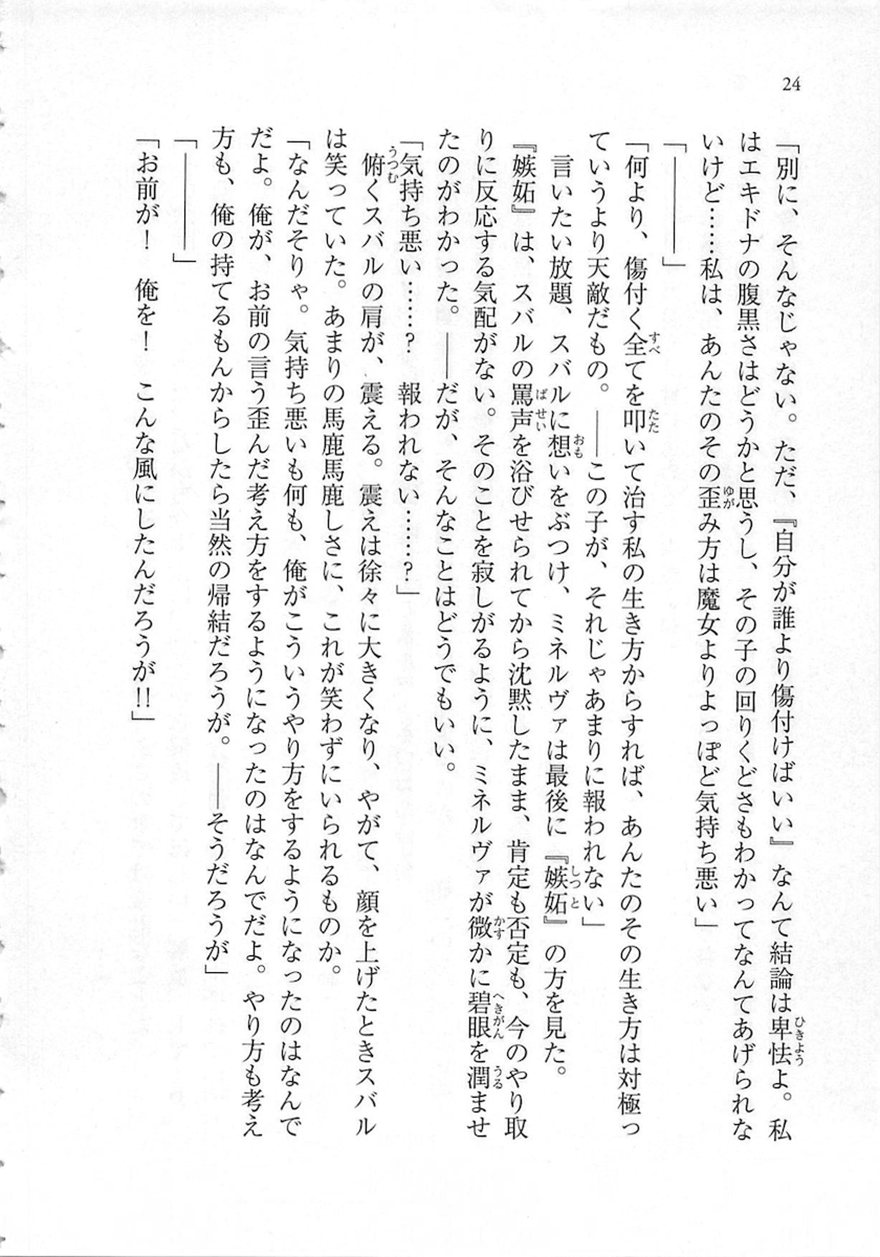 24
「別に、そんなじゃない。ただ、『自分が誰より傷付けばいい』なんて結論は卑怯よ。私
はエキドナの腹黒さはどうかと思うし、その子の回りくどさもわかってなんてあげられな
いけど……私は、あんたのその歪み方は魔女よりよっぽど気持ち悪い」
「――――」
「何より、傷付く全てを叩いて治す私の生き方からすれば、あんたのその生き方は対極っ
ていうより天敵だもの。――この子が、それじゃあまりに報われない」
　言いたい放題、スバルに想いをぶつけ、ミネルヴァは最後に『嫉妬』の方を見た。
『嫉妬』は、スバルの罵声を浴びせられてから沈黙したまま、肯定も否定も、今のやり取
りに反応する気配がない。そのことを寂しがるように、ミネルヴァが微かに碧眼を潤ませ
たのがわかった。――だが、そんなことはどうでもいい。
「気持ち悪い……？　報われない……？」
　俯くスバルの肩が、震える。震えは徐々に大きくなり、やがて、顔を上げたときスバル
は笑っていた。あまりの馬鹿馬鹿しさに、これが笑わずにいられるものか。
「なんだそりゃ。気持ち悪いも何も、俺がこういうやり方をするようになったのはなんで
だよ。俺が、お前の言う歪んだ考え方をするようになったのはなんでだよ。やり方も考え
方も、俺の持てるもんからしたら当然の帰結だろうが。――そうだろうが」
「――――」
「お前が！　俺を！　こんな風にしたんだろうが!!」